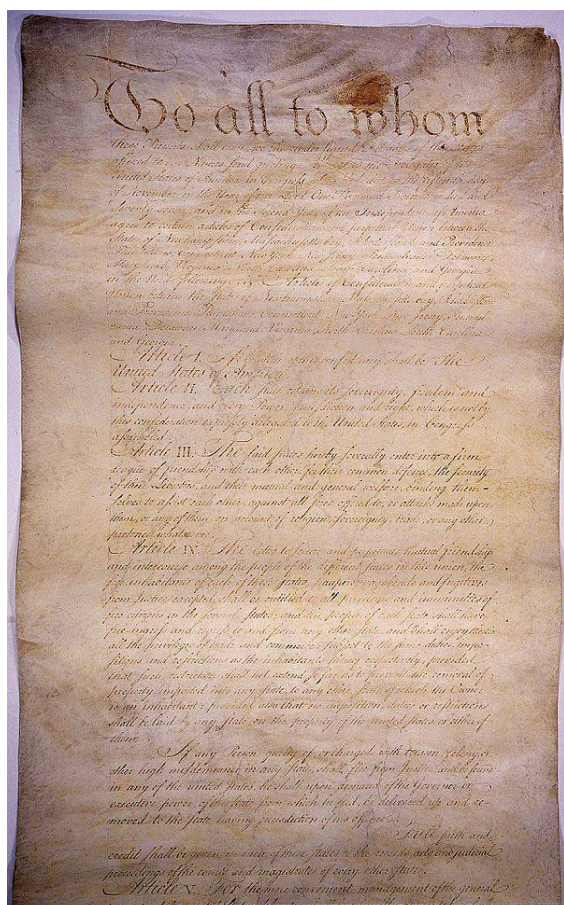 To all to whom
these Presents shall come, we the under signed Delegates of the States
affixed to our Names send greeting. Whereas the Delegates of the
United States of America in Congress assembled did on the fifteenth day
of November in the Year of our Lord One Thousand Seven Hundred and
Seventy seven, and in the Second Year of the Independence of America
agree to certain articles of Confederation and perpetual Union between the
States of Newhampshire, Massachusetts-bay, Rhodeisland and Providence
Plantations, Connecticut, New York, New Jersey, Pennsylvania, Delaware,
Maryland, Virginia, North Carolina, South Carolina and Georgia
in the Words following, viz. Articles of Confederation and perpetual
Union between the States of Newhampshire, Massachusetts-bay, Rhodeisland
and Providence Plantations, Connecticut, New York, New Jersey, Pennsyl-
vania, Delaware, Maryland, Virginia, North Carolina, South Carolina
and Georgia.
Article I. The Stile of this confederacy shall be "The
United States of America."
Article II. Each state retains its sovereignty, freedom and
independence, and every Power, Jurisdiction and right, which is not by
this confederation expressly delegated to the United States, in Congress
assembled.
Article III. The said states hereby severally enter into a firm
league of friendship with each other, for their common defence, the security
of their Liberties, and their mutual and general welfare, binding them-
selves to assist each other, against all force offered to, or attacks made upon
them, or any of them, on account of religion, sovereignty, trade, or any other
pretence whatever.
Article IV. The better to secure and perpetuate mutual friendship
and intercourse among the people of the different states in this union, the
free inhabitants of each of these states, paupers, vagabonds and fugitives
from Justice excepted, shall be entitled to all privileges and immunities of
free citizens in the several states; and the people of each state shall have
free ingress and regress to and from any other state, and shall enjoy therein
all the privileges of trade and commerce, subject to the same duties, impo-
sitions and restrictions as the inhabitants thereof respectively, provided
that such restriction shall not extend so far as to prevent the removal of
property imported into any state, to any other state of which the Owner
is an inhabitant; provided also that no imposition, duties or restriction
shall be laid by any state, on the property of the united states, or either of
them.
If any Person guilty of, or charged with treason, felony, or
other high misdemeanor in any state, shall flee from Justice, and be found
in any of the united states, he shall upon demand of the Governor or
executive power, of the state from which he fled, be delivered up and re-
moved to the state having jurisdiction of his offence.
Full faith and
credit shall be given in each of these states to the records, acts and judicial
proceedings of the courts and magistrates of every other state.
Article V. For the more convenient management of the general